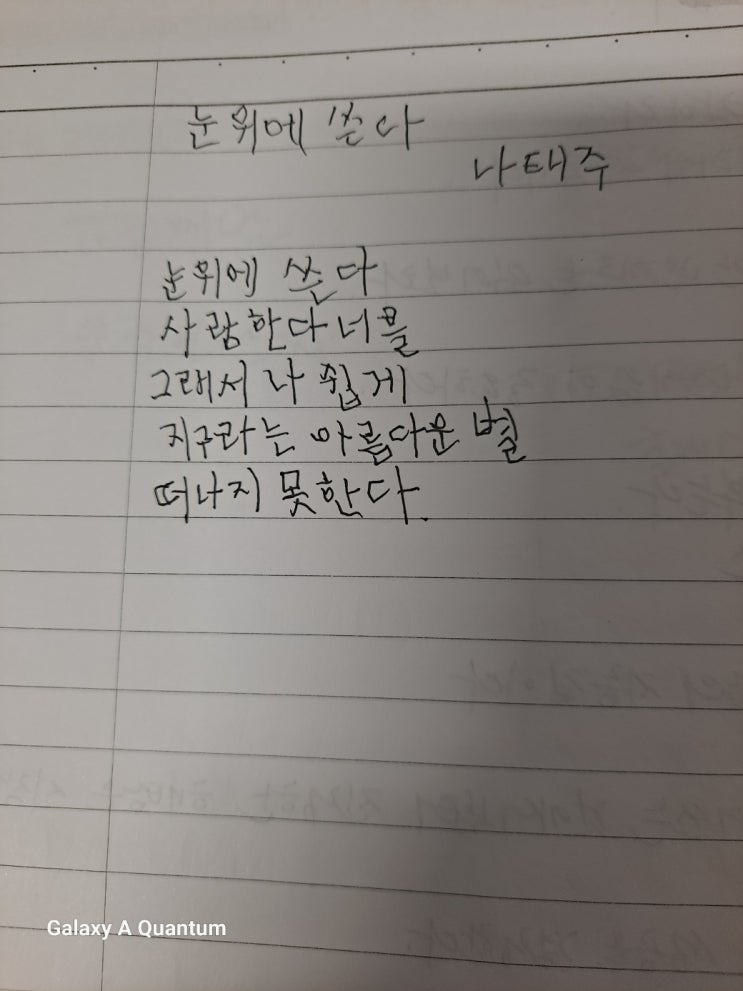 눈위에 쓴다
나태주
눈위에 쓴다
사람한다 너를
그래서 나 쉽게
지구라는 아름다운 별
떠나지 못한다.
Galaxy A Quantum